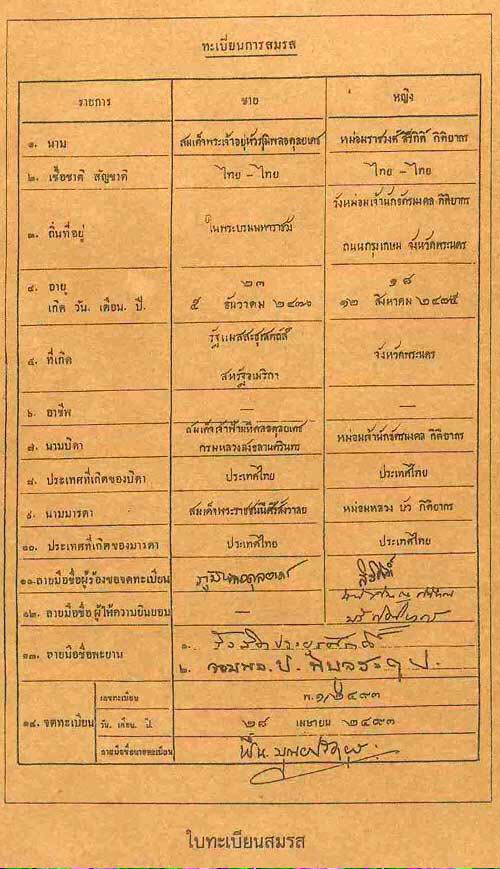 ทะเบียนการสมรส
รายการ ชาย หญิง
๑. นาม สมเด็จพระเจ้าอยู่หัวภูมิพลอดุลยเดช หม่อมราชวงศ์ สิริกิติ์ กิติยากร
๒. เชื้อชาติ สัญชาติ ไทย – ไทย ไทย – ไทย
๓. ถิ่นที่อยู่ ในพระบรมมหาราชวัง วังหม่อมเจ้านักขัตรมงคล กิติยากร
ถนนกรุงเกษม จังหวัดพระนคร
๔. อายุ ๒๓ ๑๘
เกิด วัน. เดือน. ปี. ๕ ธันวาคม ๒๔๗๐ ๑๒ สิงหาคม ๒๔๗๕
๕. ที่เกิด รัฐแมสสะชูเสตส์
สหรัฐอเมริกา จังหวัดพระนคร
๖. อาชีพ —
๗. นามบิดา สมเด็จเจ้าฟ้ามหิดลอดุลยเดช
กรมหลวงสงขลานครินทร์ หม่อมเจ้านักขัตรมงคล กิติยากร
๘. ประเทศที่เกิดของบิดา ประเทศไทย ประเทศไทย
๙. นามมารดา สมเด็จพระราชชนนีศรีสังวาลย์ หม่อมหลวง บัว กิติยากร
๑๐. ประเทศที่เกิดของมารดา ประเทศไทย ประเทศไทย
๑๑. ลายมือชื่อผู้ร้องขอจดทะเบียน ภูมิพลอดุลยเดช สิริกิติ์
๑๒. ลายมือชื่อ ผู้ให้ความยินยอม —
๑๓. ลายมือชื่อพะยาน ๑. รังสิตประยูรศักดิ์
๒. จอมพล ป. พิบูลสงคราม
๑๔. จดทะเบียน เลขทะเบียน พ.๑/๒๔๙๓
วัน. เดือน. ปี. ๒๘ เมษายน ๒๔๙๓
ลายมือชื่อนายทะเบียน ฟื้น บุณยปรัตยุธ
ใบทะเบียนสมรส